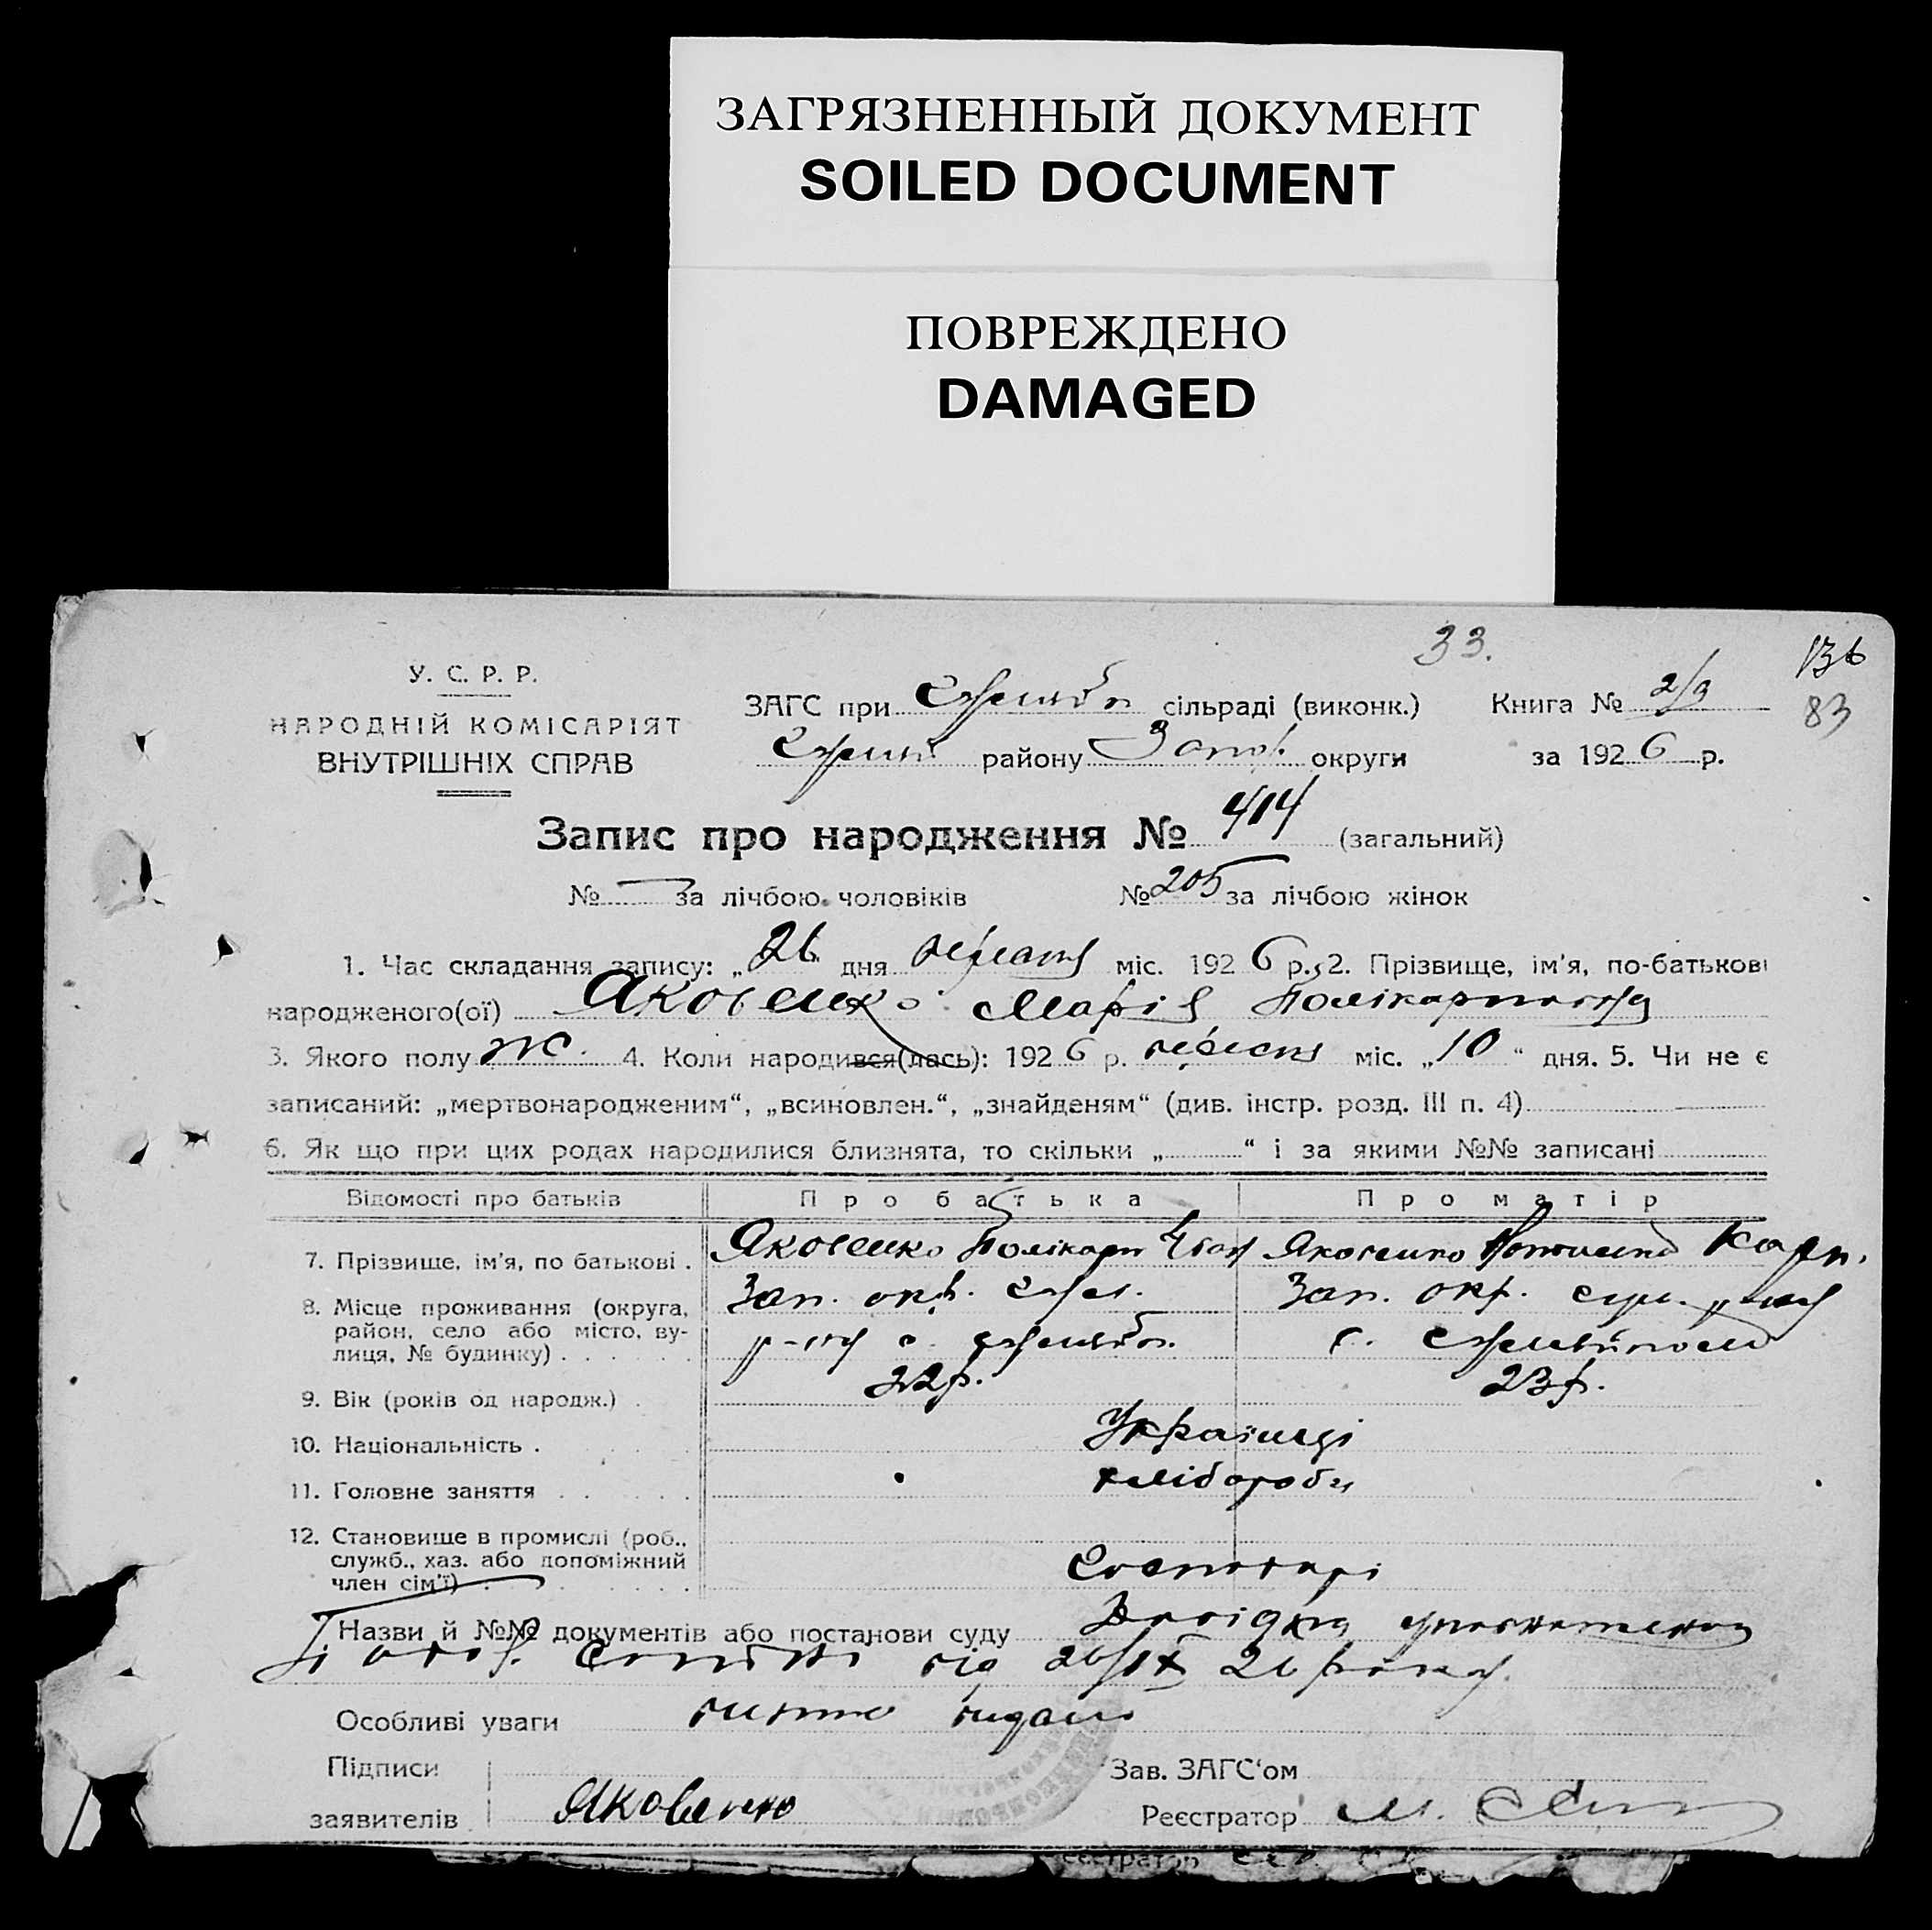 ЗАГРЯЗНЕННЫЙ ДОКУМЕНТ
SOILED DOCUMENT
ПОВРЕЖДЕНО
DAMAGED
33.
136
83
У. С. Р. Р.
НАРОДНІЙ КОМІСАРІЯТ
ВНУТРІШНІХ СПРАВ
ЗАГС при сільраді (виконк.) Книга № 2/9
району Запор. округи за 1926 р.
Запис про народження № 414 (загальний)
№ — за лічбою чоловіків № 205 за лічбою жінок
1. Час складання запису: „26“ дня вересня міс. 1926 р. 2. Прізвище, ім'я, по-батькові
народженого(ої) Яковенко Марія Полікарповна
3. Якого полу ж. 4. Коли народився(лась): 1926 р. вересня міс. „10“ дня. 5. Чи не є
записаний: „мертвонародженим“, „всиновлен.“, „знайденям“ (див. інстр. розд. III п. 4)
6. Як що при цих родах народилися близнята, то скільки „ “ і за якими №№ записані
Відомості про батьків Про батька Про матір
7. Прізвище, ім'я, по батькові . Яковенко Полікарп Яковенко Карп.
8. Місце проживання (округа, Зап. окр. Зап. окр.
район, село або місто, ву- р-ну с. с.
лиця, № будинку) . . . . .
9. Вік (років од народж.) . 32р. 23р.
10. Національність . Українці
11. Головне заняття . . . . хлібороби
12. Становище в промислі (роб.,
служб., хаз. або допоміжний Господарі
член сім'ї) . . . . . .
Назви й №№ документів або постанови суду Довідка
від 26/IX 26 року.
Особливі уваги видано
Підписи Зав. ЗАГС'ом
заявителів Яковенко Реєстратор М.
еєстратор